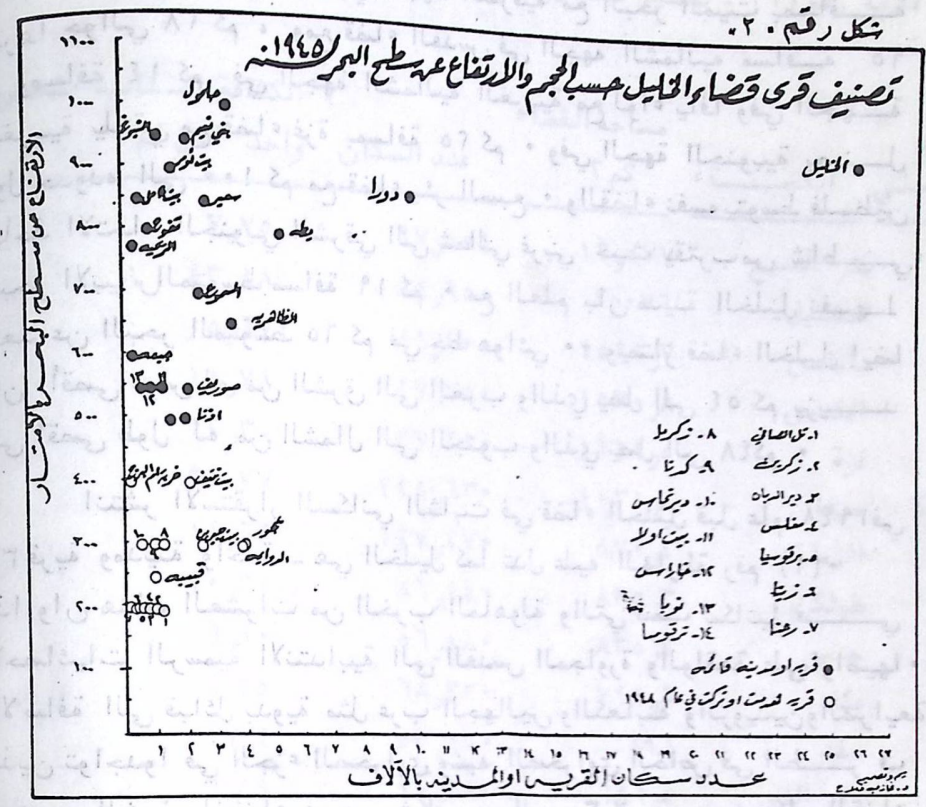 شكل رقم ٢٠
تصنيف قرى قضاء الخليل حسب الحجم والارتفاع عن سطح البحر/ ١٩٤٥
الارتفاع عن سطح البحر بالامتار
١١٠٠
١٠٠٠
٩٠٠
٨٠٠
٧٠٠
٦٠٠
٥٠٠
٤٠٠
٣٠٠
٢٠٠
١٠٠
حلحول
بني نعيم
الشيوخ
بيت فجار
الخليل
دورا
سعير
تفوح
يطه
الريحيه
السموع
الظاهريه
صوريف
اذنا
بيت نتيف
عجور
الدوايمه
بيت جبرين
قبيبه
١- تل الصافي
٢- زكرين
٣- دير الدبان
٤- مغلس
٥- برقوسيا
٦- زيتا
٧- رعنا
٨- زكريا
٩- كدنا
١٠- دير نخاس
١١- بيت اولا
١٢- خاراس
١٣- نوبا
١٤- ترقوميا
● قريه او مدينه قائمه
○ قريه هدمت او تركت في عام ١٩٤٨
١ ٢ ٣ ٤ ٥ ٦ ٧ ٨ ٩ ١٠ ١١ ١٢ ١٣ ١٤ ١٥ ١٦ ١٧ ١٨ ١٩ ٢٠ ٢١ ٢٢ ٢٣ ٢٤ ٢٥ ٢٦ ٢٧
عدد سكان القريه او المدينه بالآلاف